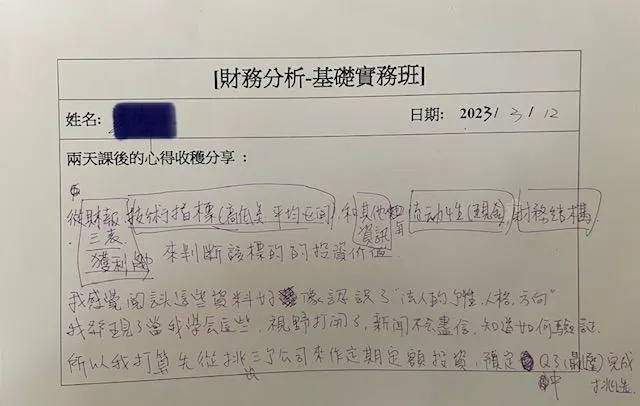 [財務分析-基礎實務班]
姓名: 日期: 2023/3/12
兩天課後的心得收穫分享：
從財報 技術指標(高低差 平均區間), 和其他 流動性(現金), 財務結構
三表 資訊
獲利 來判斷該標的的投資价值
我感覺閱讀這些資料好像認識了"法人的個性、人格、方向"
我發現了當我學會這些, 視野打開了, 新聞不会盡信, 知道如何驗証
所以我打算先從挑三了公司來作定期定額投資, 預定 Q3(最遲)完成
中 挑選.